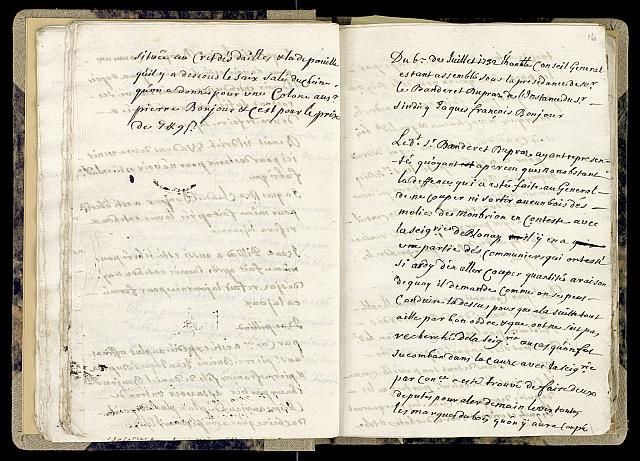 située au Cret dés dailles & la depouille
quil y a dessous le Saix Sale du chêne
quon a donné pour une Colone au sr
pierre Bonjour & c'est pour le prix
de 7 # 9 s.
16
Du 6e des Juillet 1792 l'honble Conseil General
estant assemblé sous la présidance de Mr
le Banderet Dupraz de l'Instance du Sr
Sindiq Jaques François Bonjour
Led.t Sr Banderet Dupraz ayant represen-
té, quoyant apercu que nonobstant
la deffence qui a esté faite au General
de ne couper ni sortir aucun bois des
molies des Monbrion en Conteste avec
la Seigrie de Blonay il y en a
une partie dés Communiers qui ont esté
si ardy d'en aller Couper quantités a raison
de quoy il demande Comme on se peut
Conduire la dessus pour que a la suitte tout
aille par bon ordre & que on ne soit pas
recherché de la Seigrie au cas qu'on fut
sucomber dans la Cause avec la Seigrie
par Conce a esté trouvé de faire deux
deputés pour aler demain lever toutes
les marques du bois quon y aura Coupé